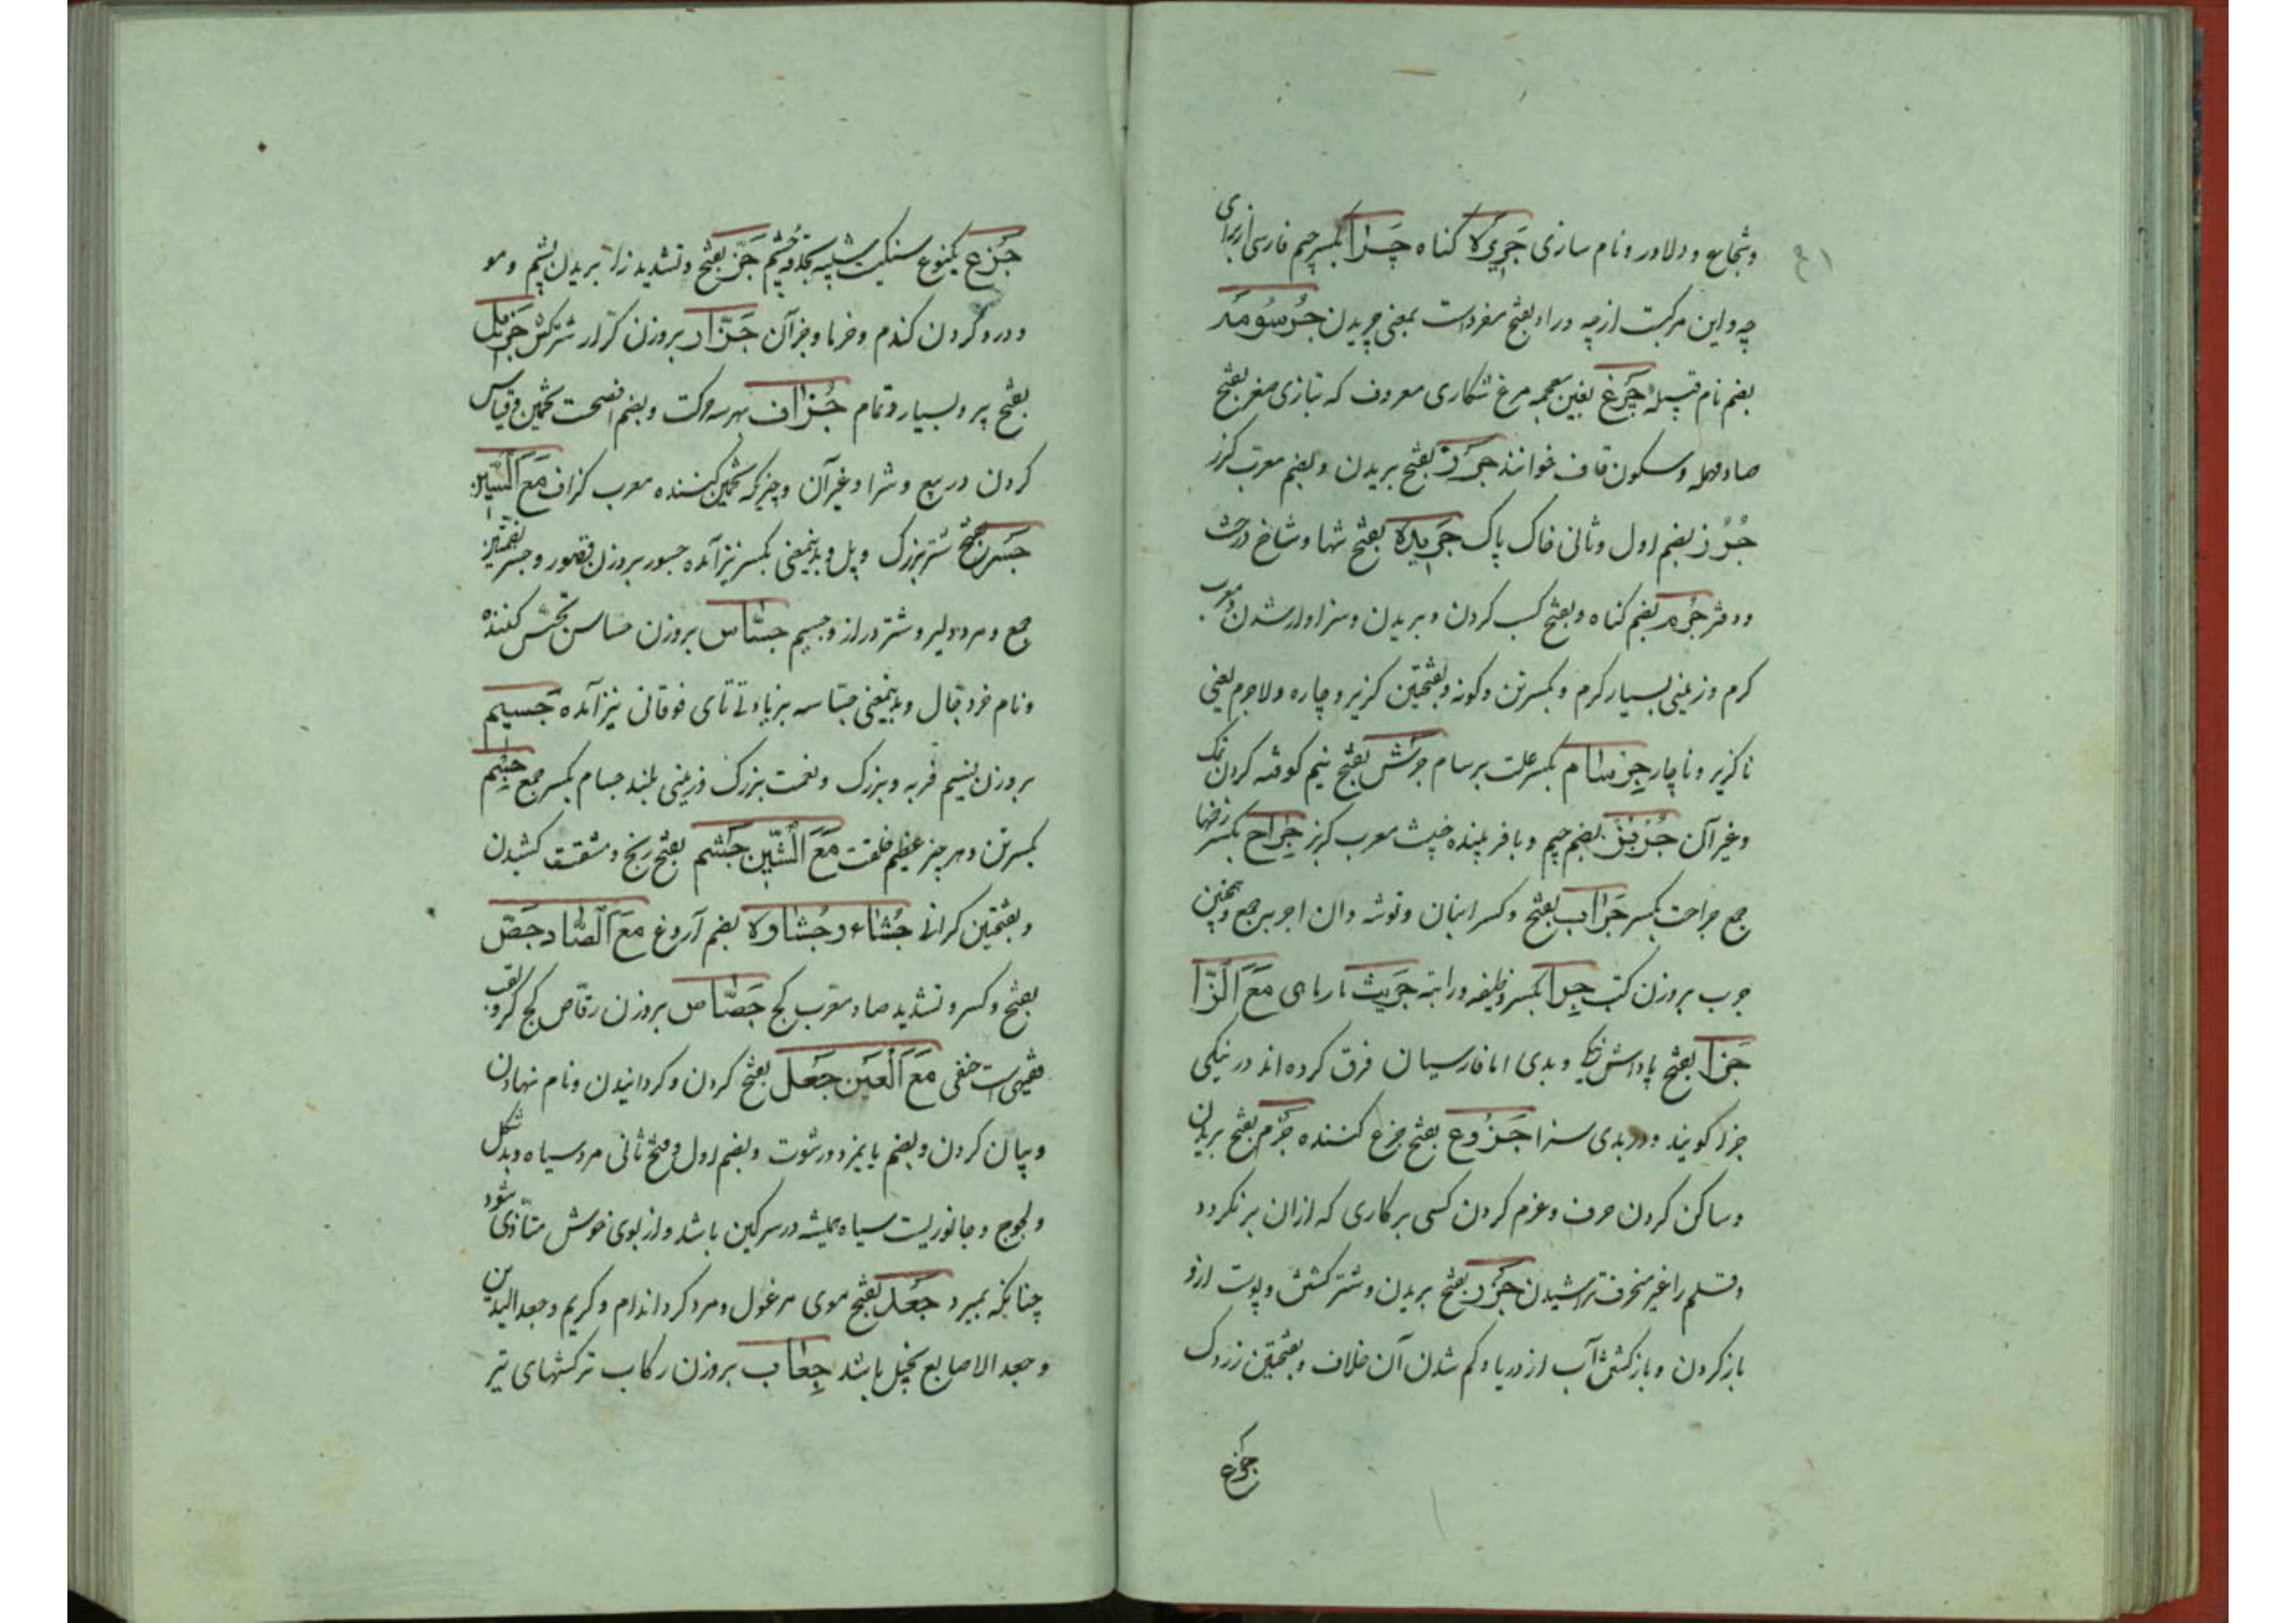 وشجاع و دلاور و نام سازی جَرِيره کناه چَرا بکسر جیم فارسی از برای
چه و این مرکبست از چه و را و بفتح مفرد است بمعنی چریدن جُرسُومَد
بضم نام قبیله چَرغ بغین معجمه مرغ شکاری معروف که بتازی صقر بفتح
صاد مهمله و سکون قاف خوانند جَرز بفتح بریدن و بضم معرب کرز
جُرُز بضم اول و ثانی خاک پاک جَریده بفتح تنها و شاخ درخت
و دفتر جُرم بضم کناه و بفتح کسب کردن و بریدن و سزاوار شدن و معرب
کرم و زمینی بسیار کرم و بکسر تن و کونه و بفتحتین کزیر و چاره و لاجرم یعنی
ناکزیر و ناچار جِرسام بکسر علت برسام جَرش بفتح نیم کوفته کردن نمک
و غیر آن جُربُز بضم جیم و با فریبنده خبیث معرب کربز جِراح بکسر زخمها
جمع جراحت بکسر جَراب بفتح و کسر انبان و توشه دان اجربه جمع و همچنین
جرب بروزن کتب جِرا بکسر وظیفه و راتبه جَرِیث مارماهی مَعَ الزّا
جَزا بفتح پاداش نیکی و بدی اما فارسیان فرق کرده اند در نیکی
جزا کویند و در بدی سزا جَزُوع بفتح جزع کننده جَزم بفتح بریدن
و ساکن کردن حرف و عزم کردن کسی بر کاری که ازان برنکردد
و قلم را غیر منحرف تراشیدن جَزر بفتح بریدن و شتر کشتن و پوست ازو
باز کردن و باز کشتن آب از دریا و کم شدن آن خلاف و بفتحتین زردک
جزع
جَزع یکنوع سنکیست شبیه بحدقه چشم جَزّ بفتح و تشدید زا بریدن پشم و مو
و درو کردن کندم و خرما و جز آن جَزّار بروزن کرّار شترکش جَزیل
بفتح پر و بسیار و تمام جُزاف بهر سه حرکت و بضم افصحست تخمین و قیاس
کردن در بیع و شرا و غیر آن و چیزیکه تخمین کننده معرب کزاف مَعَ السِّین
جَسر بفتح شتر بزرک و پل و بدینمعنی بکسر نیز آمده جسور بروزن قصور و جسر بضمتین
جمع و مرد دلیر و شتر دراز و جسیم جسّاس بروزن حساس تجسس کننده
و نام خر دجال و بدینمعنی جسّاسه بزیادتی تای فوقانی نیز آمده جَسیم
بروزن نسیم فربه و بزرک و نعمت بزرک و زمینی بلند جسام بکسر جمع جِسم
بکسر تن و هر چیز عظیم خلقت مَعَ الشّین جَشم بفتح رنج و مشقت کشیدن
و بفتحتین کرانی جُشاء و جُشاوه بضم آروغ مَعَ الصّاد جَصّ
بفتح و کسر و تشدید صاد معرب کج جَصّاص بروزن رقّاص کج کر و لقب
فقیهی است حنفی مَعَ العَین جَعل بفتح کردن و کردانیدن و نام نهادن
و بیان کردن و بضم پایمزد و رشوت و بضم اول و فتح ثانی مرد سیاه و بدشکل
و لجوج و جانوریست سیاه همیشه در سرکین باشد و از بوی خوش متأذی شود
چنانکه بمیرد جَعد بفتح موی مرغول و مرد کرد اندام و کریم و جعد الیدین
و جعد الاصابع بخیل باشد جِعاب بروزن رکاب ترکشهای تیر